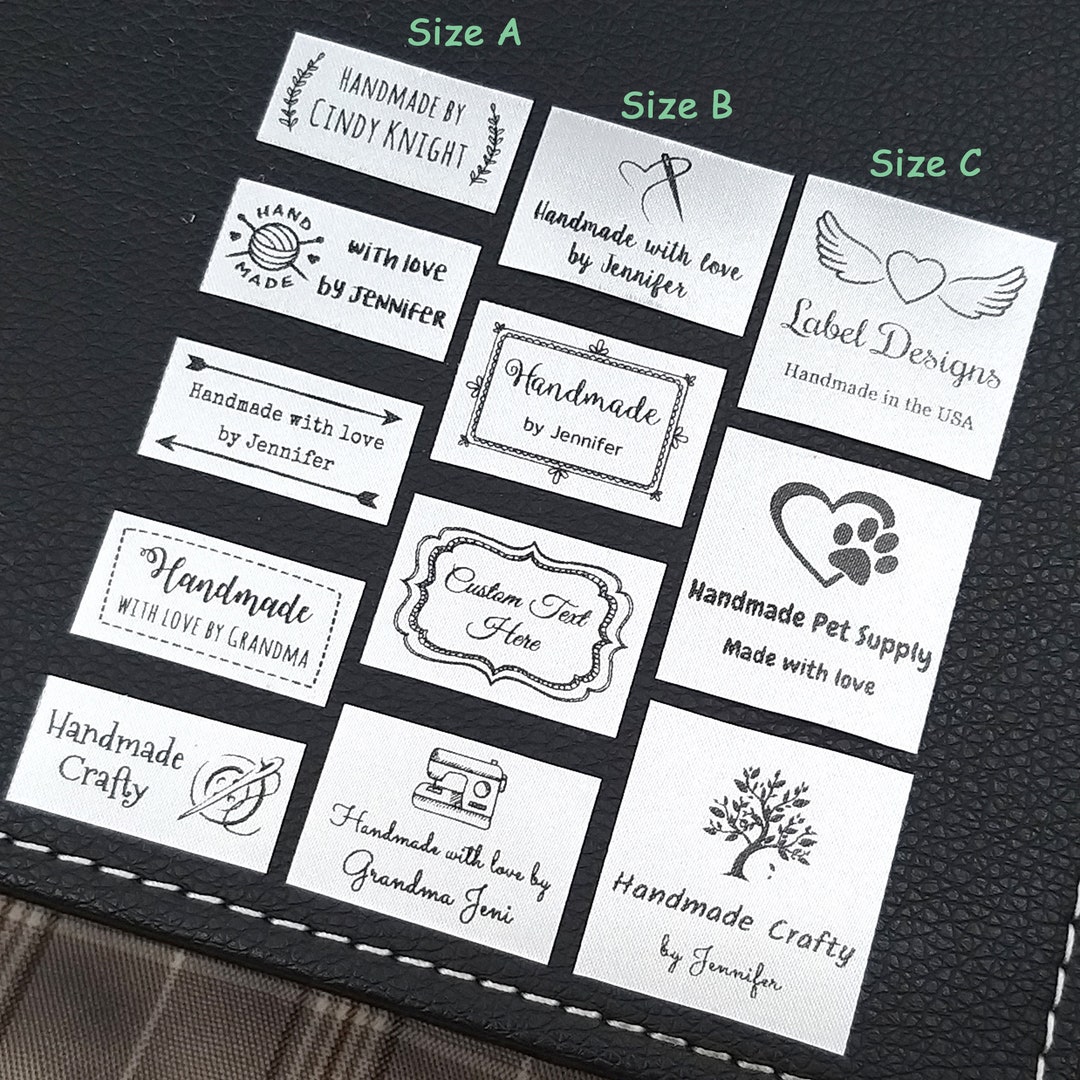 Size A
HANDMADE BY
CINDY KNIGHT
HAND
MADE
with love
by Jennifer
Handmade with love
by Jennifer
Handmade
WITH LOVE BY GRANDMA
Handmade
Crafty
Size B
Handmade with love
by Jennifer
Handmade
by Jennifer
Custom Text
Here
Handmade with love by
Grandma Jeni
Size C
Label Designs
Handmade in the USA
Handmade Pet Supply
Made with love
Handmade Crafty
by Jennifer